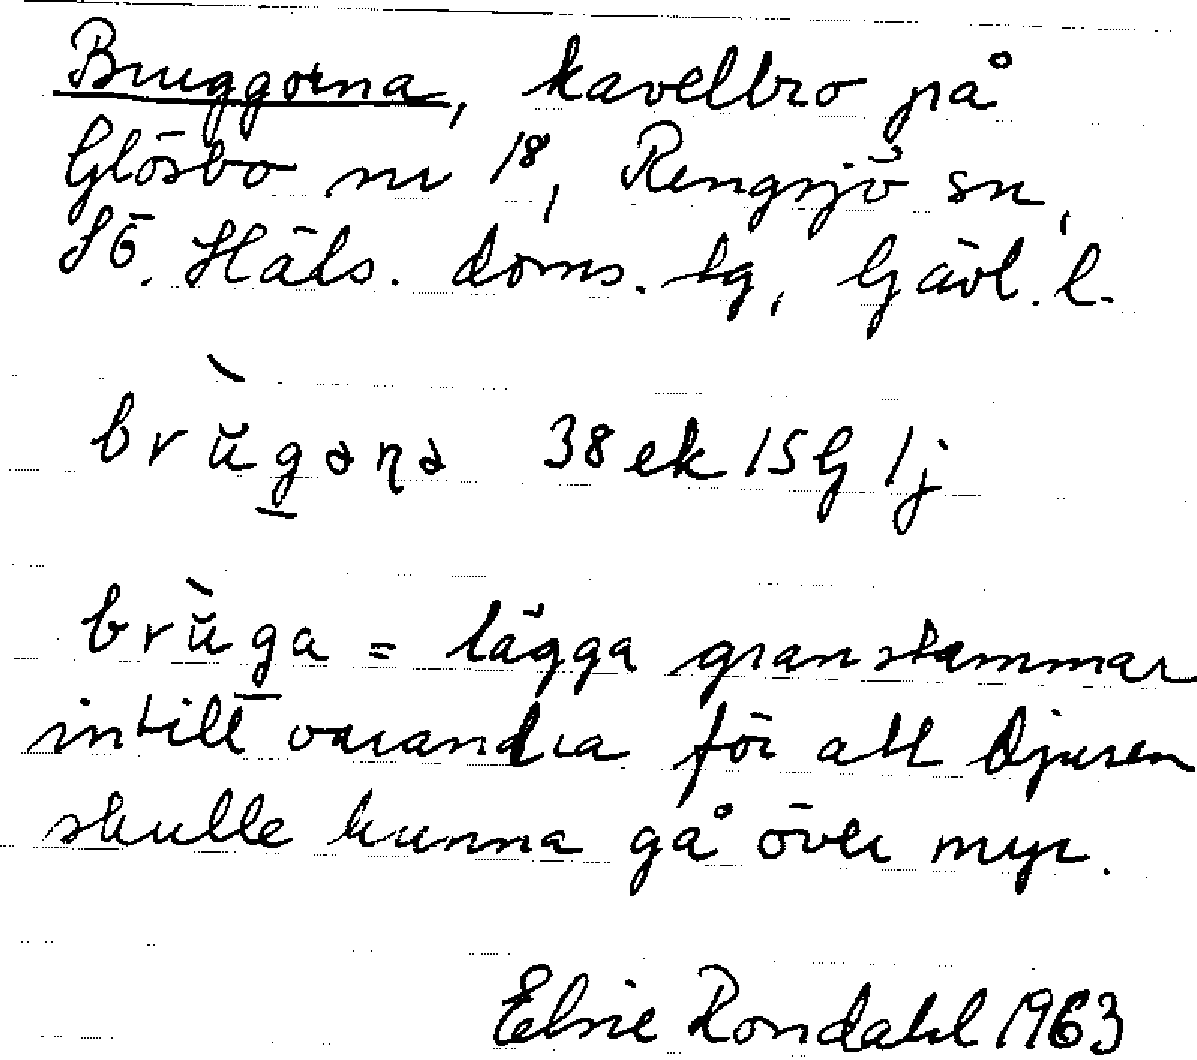 Bruggorna, kavelbro på
Glösbo nr 18, Rengsjö sn,
SÖ. Häls. doms. tg, Gävl. l.
brǜg̲ənə 38 ek 15 G 1j
brǜg̲a = lägga granstammar
intill varandra för att djuren
skulle kunna gå över myr.
Elsie Rondahl 1963